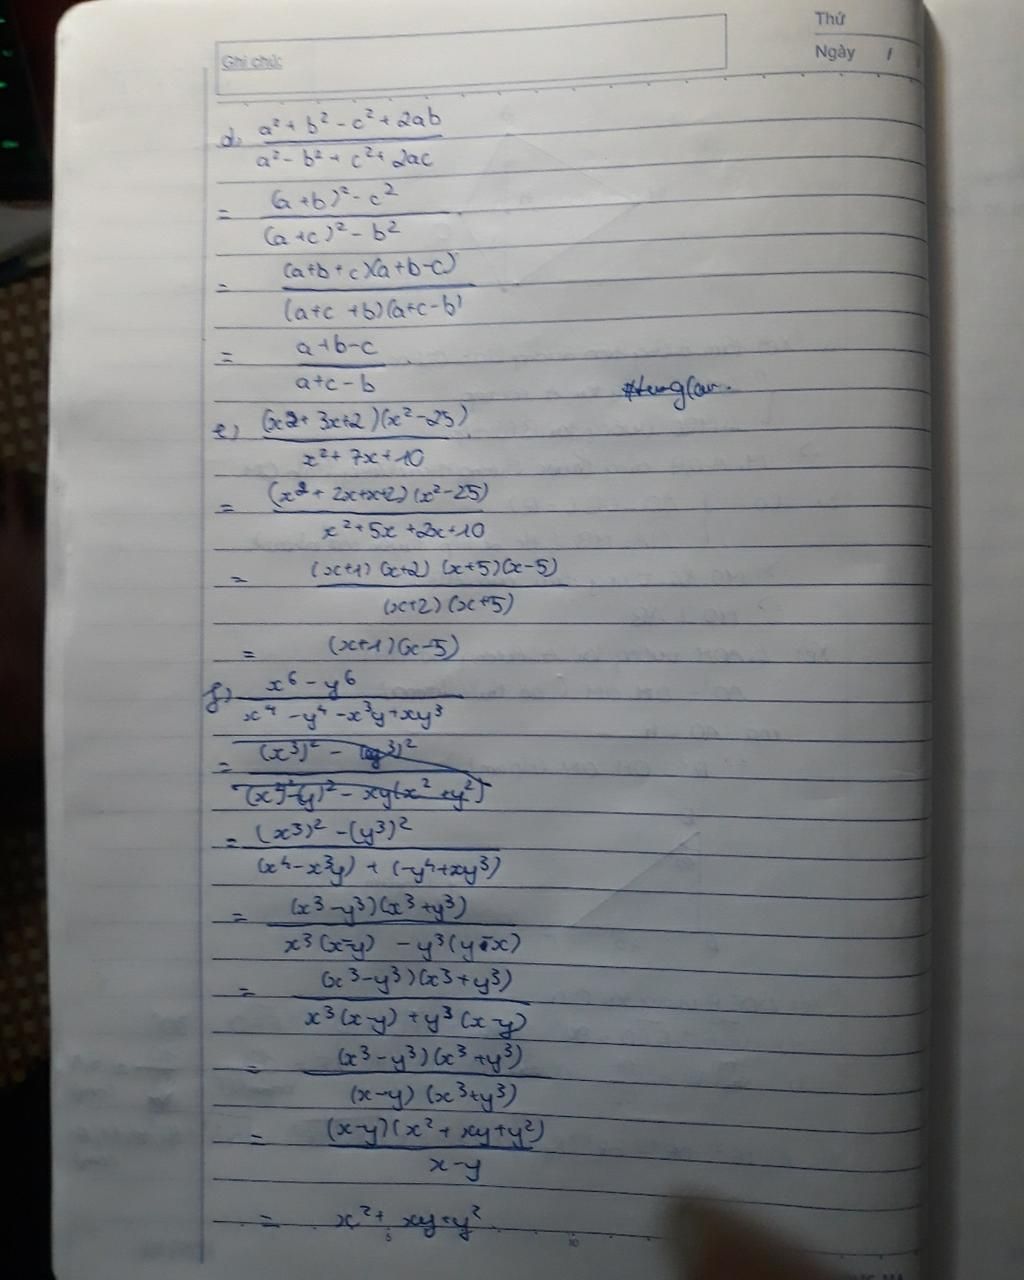 Thứ
Ghi chú:
Ngày /
d, a² + b² - c² + 2ab
a² - b² + c² + 2ac
= (a+b)² - c²
(a+c)² - b²
= (a+b+c)(a+b-c)
(a+c+b)(a+c-b)
= a+b-c
a+c-b
e, (x²+3x+2)(x²-25)
x²+7x+10
= (x²+2x+x+2)(x²-25)
x²+5x+2x+10
= (x+1)(x+2)(x+5)(x-5)
(x+2)(x+5)
= (x+1)(x-5)
f, x⁶ - y⁶
x⁴ - y⁴ - x³y + xy³
= (x³)² - (y³)²
- xy(x² + y²)
= (x³)² - (y³)²
(x⁴ - x³y) + (-y⁴ + xy³)
= (x³ - y³)(x³ + y³)
x³(x-y) - y³(y-x)
= (x³ - y³)(x³ + y³)
x³(x-y) + y³(x-y)
= (x³ - y³)(x³ + y³)
(x-y)(x³ + y³)
= (x-y)(x² + xy + y²)
x-y
= x² + xy + y²
5 10